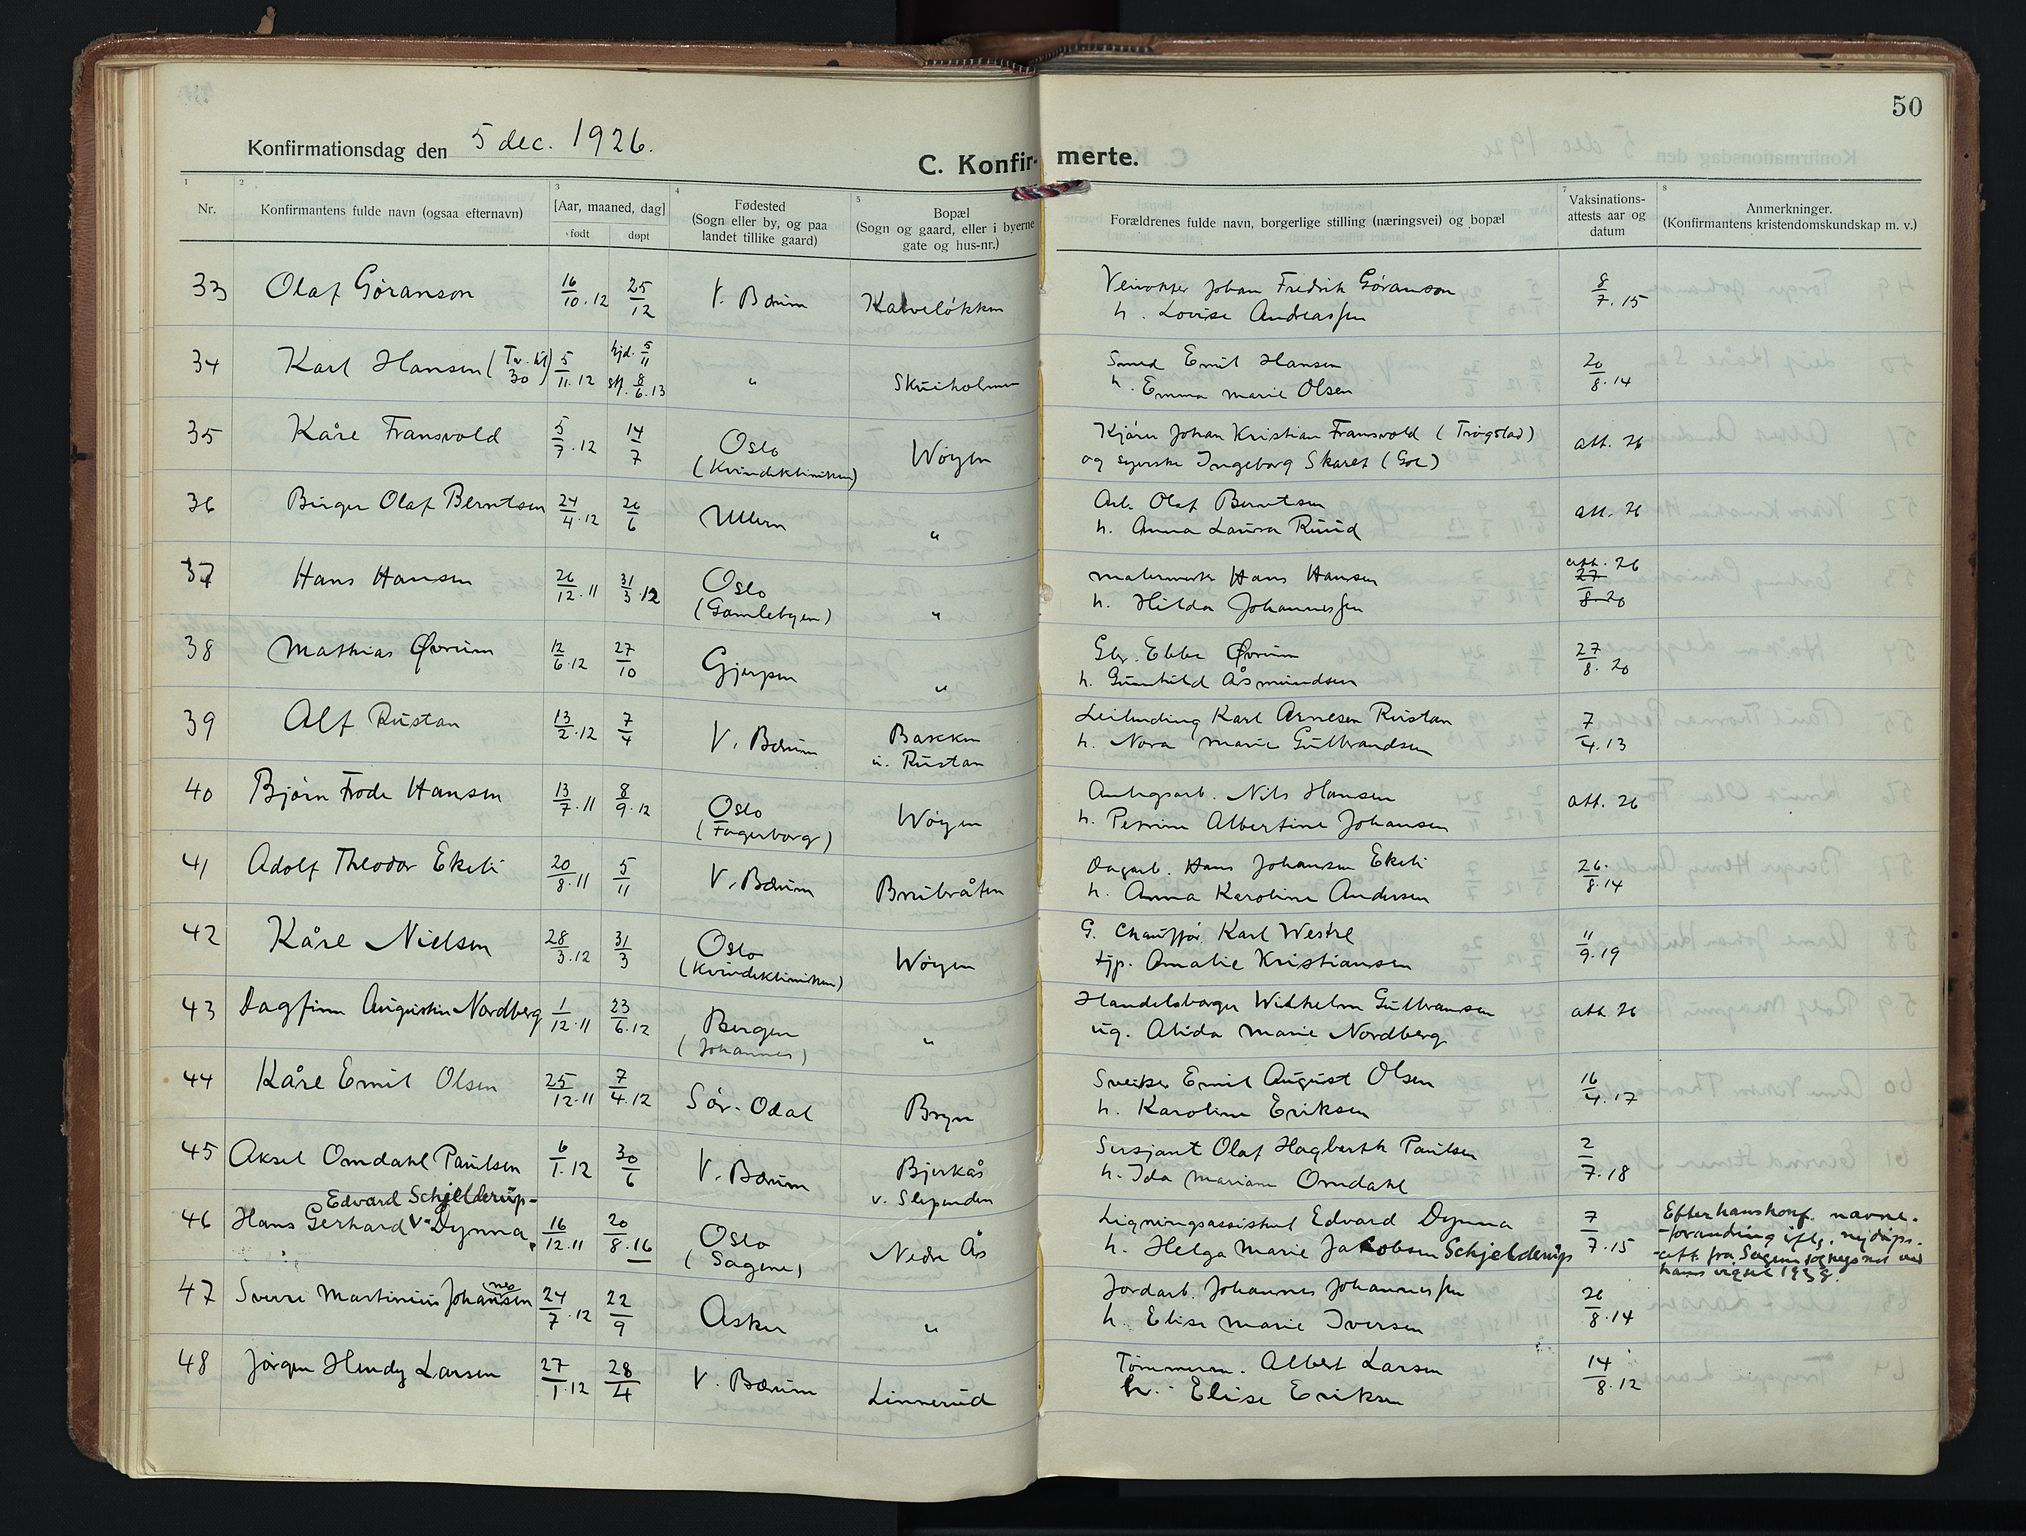 50
Konfirmationsdag den 5 dec. 1926.
C. Konfirmerte.
1 2 3 4 5 7 8
Nr.
Konfirmantens fulde navn (ogsaa efternavn)
[Aar, maaned, dag]
født døpt
Fødested
(Sogn eller by, og paa
landet tillike gaard)
Bopæl
(Sogn og gaard, eller i byerne
gate og hus-nr.)
Forældrenes fulde navn, borgerlige stilling (næringsvei) og bopæl
Vaksinations-
attests aar og
datum
Anmerkninger.
(Konfirmantens kristendomskundskap m. v.)
33 Olaf Gøranson 16/10.12 25/12 V. Bærum Kalveløkken Veivokter Johan Fredrik Gøranson 8/7.15
h. Lovise Andreassen
34 Karl Hansen (Tv. til 30) 5/11.12 hjd. 5/11 st. 8/6.13 " Skuiholmen Smed Emil Hansen 20/8.14
h. Emma Marie Olsen
35 Kåre Fransvold 5/7.12 14/7 Oslo Wøyen Kjører Johan Kristian Fransvold (Trøgstad) att. 26
(Kvindeklinikken) og syerske Ingeborg Skaret (Gol)
36 Birger Olaf Berntsen 24/4.12 26/6 Ullern " Arb. Olaf Berntsen att. 26
h. Anna Laura Ruud
37 Hans Hansen 26/12.11 31/3.12 Oslo " Malermester Hans Hansen att. 26
(Gamlebyen) h. Hilda Johannessen 27/8.20
38 Mathias Øvrum 12/6.12 27/10 Gjerpen " Gbr. Ebbe Øvrum 27/8.20
h. Gunhild Åsmundsen
39 Alf Rustan 13/2.12 7/4 V. Bærum Bakken Leilending Karl Arnesen Rustan 7/4.13
u. Rustan h. Nora Marie Gulbrandsen
40 Bjørn Frode Hansen 13/7.11 8/9.12 Oslo Wøyen Anlegsarb. Nils Hansen att. 26
(Fagerborg) h. Petrine Albertine Johansen
41 Adolf Theodor Ekeli 20/8.11 5/11 V. Bærum Brubråten Dagarb. Hans Johansen Ekeli 26/8.14
h. Anna Karoline Andersen
42 Kåre Nielsen 28/3.12 31/3 Oslo Wøyen G. Chauffør Karl Westre 11/9.19
(Kvindeklinikken) tjp. Amalie Kristiansen
43 Dagfinn Augustin Nordberg 1/12.11 23/6.12 Bergen " Handelsborger Wilhelm Gulbransen att. 26
(Johannes) ug. Alida Marie Nordberg
44 Kåre Emil Olsen 25/12.11 7/4.12 Sør-Odal Bryn Sveiser Emil August Olsen 16/4.17
h. Karoline Eriksen
45 Aksel Omdahl Paulsen 6/1.12 30/6 V. Bærum Bjerkås Sersjant Olaf Hagbarth Paulsen 2/7.18
v. Slependen h. Ida Mariane Omdahl
Edvard Schjelderup-
46 Hans Gerhard V Dynna 16/12.11 20/8.16 Oslo Nedre Ås Ligningsassistent Edvard Dynna 7/7.15 Efter hans konf. navne-
(Sagene) h. Helga Marie Jakobsen Schjelderup -forandring iflg. ny dåps-
att. fra Sagene
hans vigsel 1939.
47 Sverre Martinius Johansen nes 24/7.12 22/9 Asker " Jordarb. Johannes Johannessen 26/8.14
h. Elise Marie Iversen
48 Jørgen Hendy Larsen 27/1.12 28/4 V. Bærum Linnerud Tømmerm. Albert Larsen 14/8.12
h. Elise Eriksen